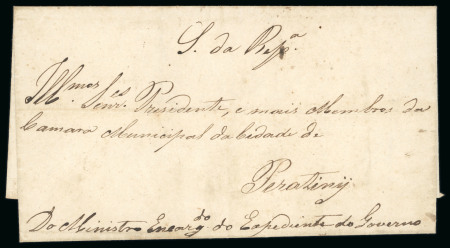 S. da Repa.
Illmos. Senres. Presidente, e mais Membros da
Camara Municipal da Cedade de
Peratiny
Do Ministro Encargdo. do Expediente do Governo